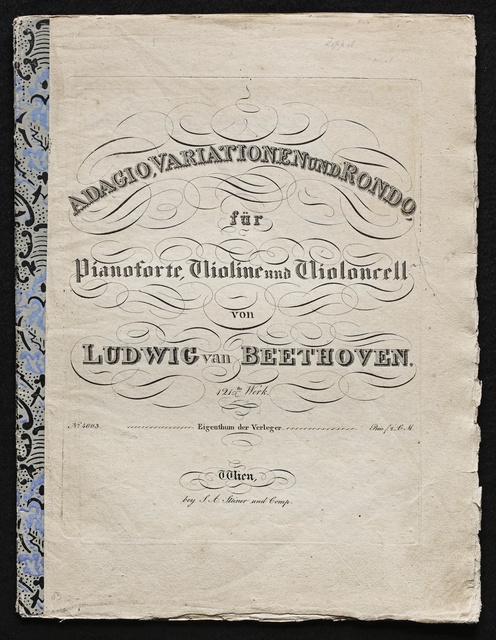 ADAGIO, VARIATIONEN UND RONDO,
für
Pianoforte, Violine und Violoncell
von
LUDWIG van BEETHOVEN.
121tes Werk.
No 4603. Eigenthum der Verleger.
Wien,
bey S. A. Steiner und Comp.